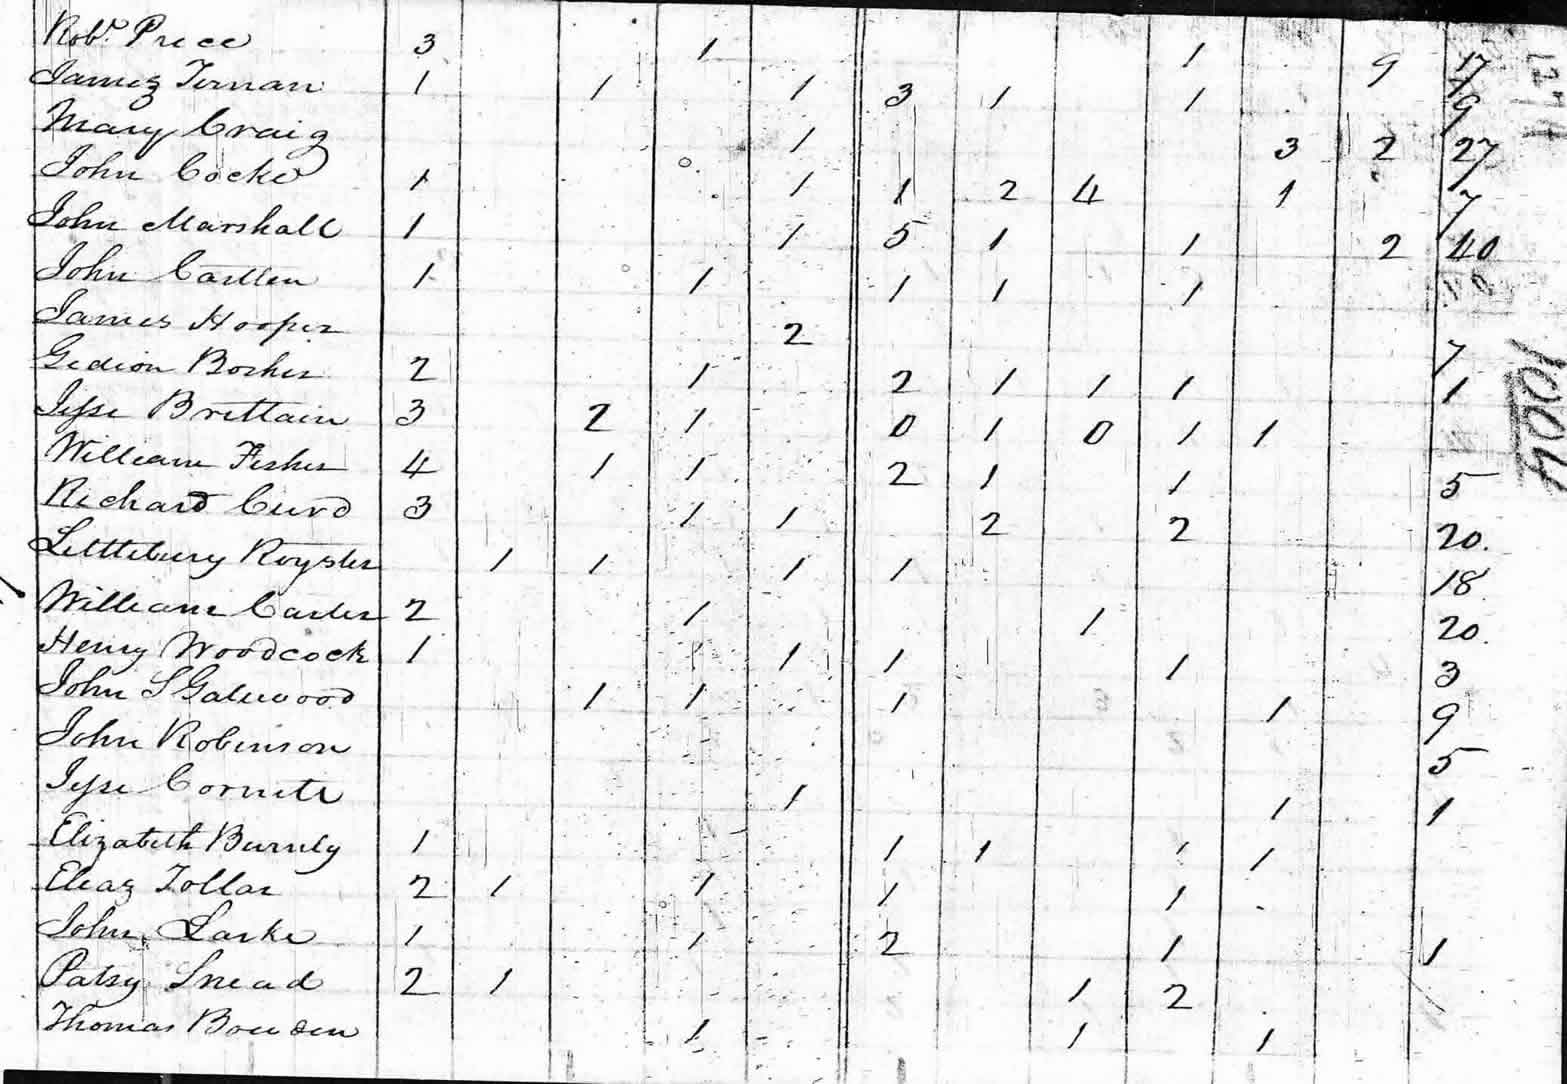 Robt. Price 3 1 1 9 17
James Ternan 1 1 1 3 1 1 19
Mary Craig 1 3 2 27
John Cocke 1 1 1 2 4 1 7
John Marshall 1 1 5 1 1 2 40
John Carllen 1 1 1 1 1
James Hooper 2 7
Gedion Bosher 2 1 2 1 1 1 1
Jesse Brittain 3 2 1 0 1 0 1 1
William Fisher 4 1 1 2 1 1 5
Richard Curd 3 1 1 2 2 20.
Littlebury Royster 1 1 1 1 18
William Carter 2 1 1 20.
Henry Woodcock 1 1 1 1 3
John S Gatewood 1 1 1 1 9
John Robinson 5
Jesse Cornett 1 1 1
Elizabeth Burnly 1 1 1 1 1
Elias Tollar 2 1 1 1 1
John Larke 1 1 2 1 1
Patsy Snead 2 1 1 2
Thomas Bowden 1 1 1
1004